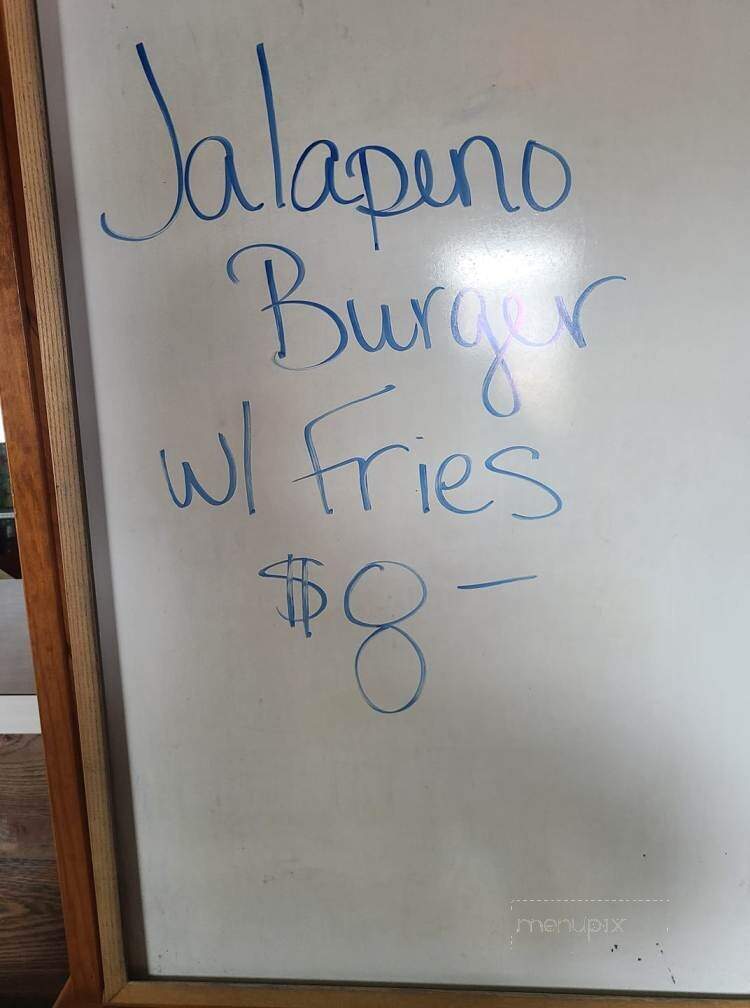 Jalapeno
Burger
w/ Fries
$8-
menupix